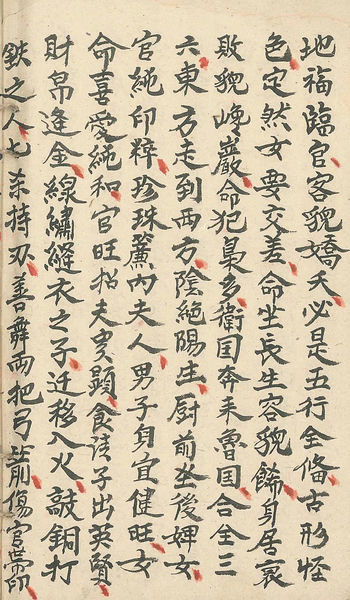 地福臨官客貌嬌夭必是五行全俻古形怪
色定然女要交差命坐長生容貌餙身居衰
敗貌峻巖命犯梟多衛囯奔来魯囯合全三
六東方走到西方陰絶陽生厨前坐後婢女
官純印粹珍珠簾内夫人男子身宜健旺女
命喜愛純和官旺招夫男顕食清子出英賢
財帛逢金線繡縫衣之子迁移入火敲銅打
鉄之人七杀持刃善舞両把弓箭傷官帶